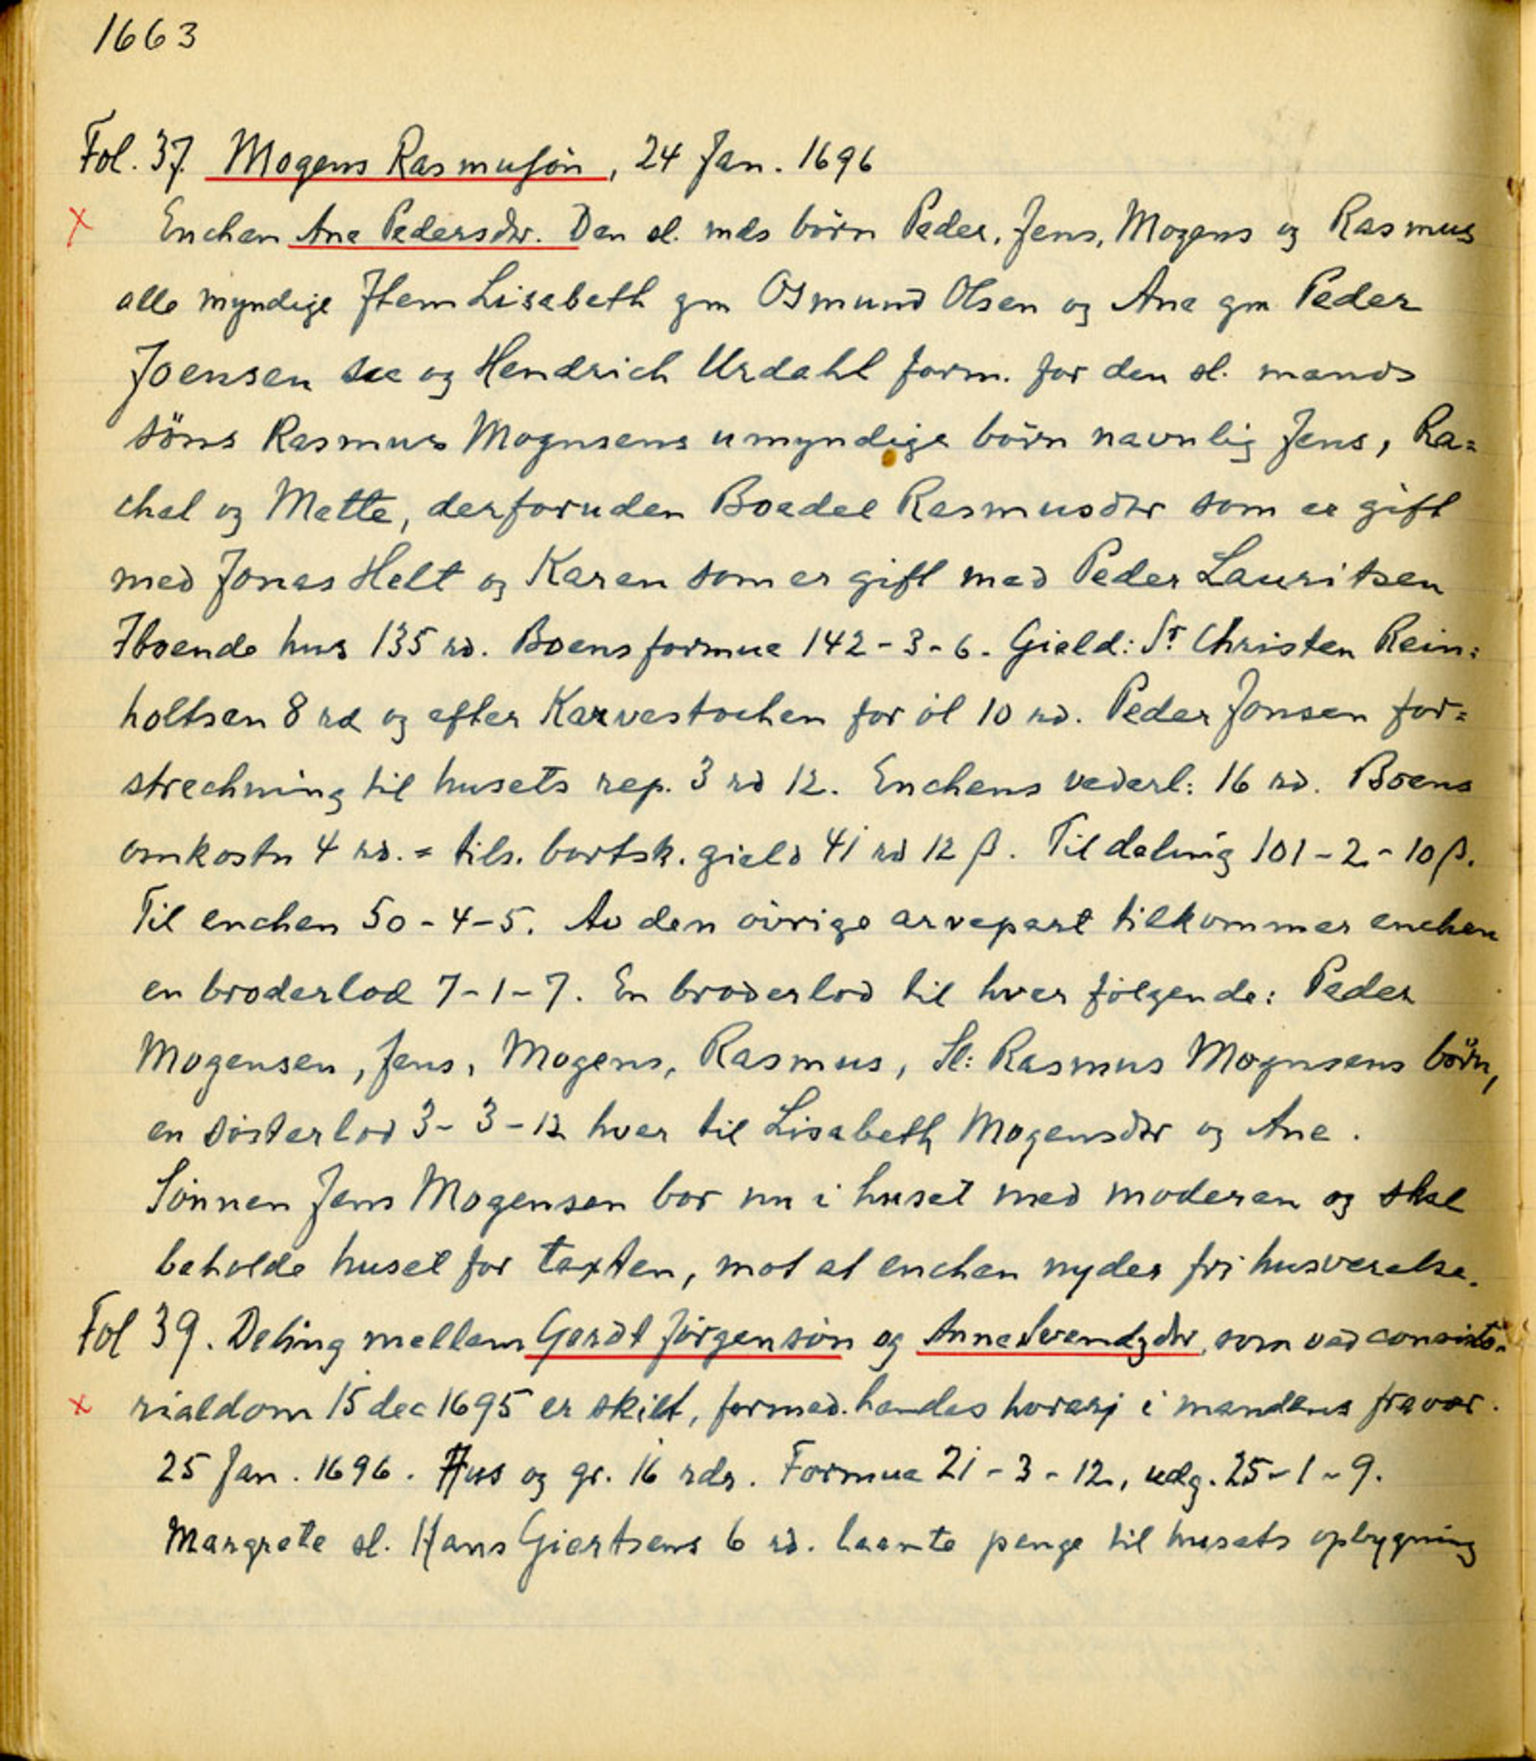 1663
Fol. 37. Mogens Rasmusøn, 24 Jan. 1696
x Enchen Ane Pedersdtr. Den sl. mds børn Peder, Jens, Mogens og Rasmus
alle myndige Item Lisabeth gm Osmund Olsen og Ane gm Peder
Joensen og Hendrich Urdahl form. for den sl. mands
söns Rasmus Mognsens umyndige børn navnlig Jens, Ra=
chel og Mette, derforuden Boedel Rasmusdtr som er gift
med Jonas Helt og Karen som er gift med Peder Lauritsen
Iboende hus 135 rd. Boens formue 142-3-6. Gield: Sr. Christen Rein=
holtsen 8 rd og efter Karvestochen for øl 10 rd. Peder Jonsen for=
strechning til husets rep. 3 rd 12. Enchens vederl: 16 rd. Boens
omkostn 4 rd. = tils. bortsk. gield 41 rd 12 β. Til deling 101-2-10 β.
Til enchen 50-4-5. Av den øvrige arvepart tilkommer enchen
en broderlod 7-1-7. En broderlod til hver følgende: Peder
Mogensen, Jens, Mogens, Rasmus, Sl: Rasmus Mognsens børn,
en søsterlod 3-3-12 hver til Lisabeth Mogensdtr og Ane.
Sønnen Jens Mogensen bor nu i huset med moderen og skal
beholde huset for taxten, mot at enchen nyder fri husverelse.
Fol 39. Deling mellem Gerdt Jørgensøn og Anne Svendzdtr, som ved consisto-
x rialdom 15 dec 1695 er skilt, formed. hendes horerj i mandens fravær.
25 Jan. 1696. Hus og gr. 16 rdr. Formue 21-3-12, udg. 25-1-9.
Margrete sl. Hans Giertsens 6 rd. laante penge til husets opbygning